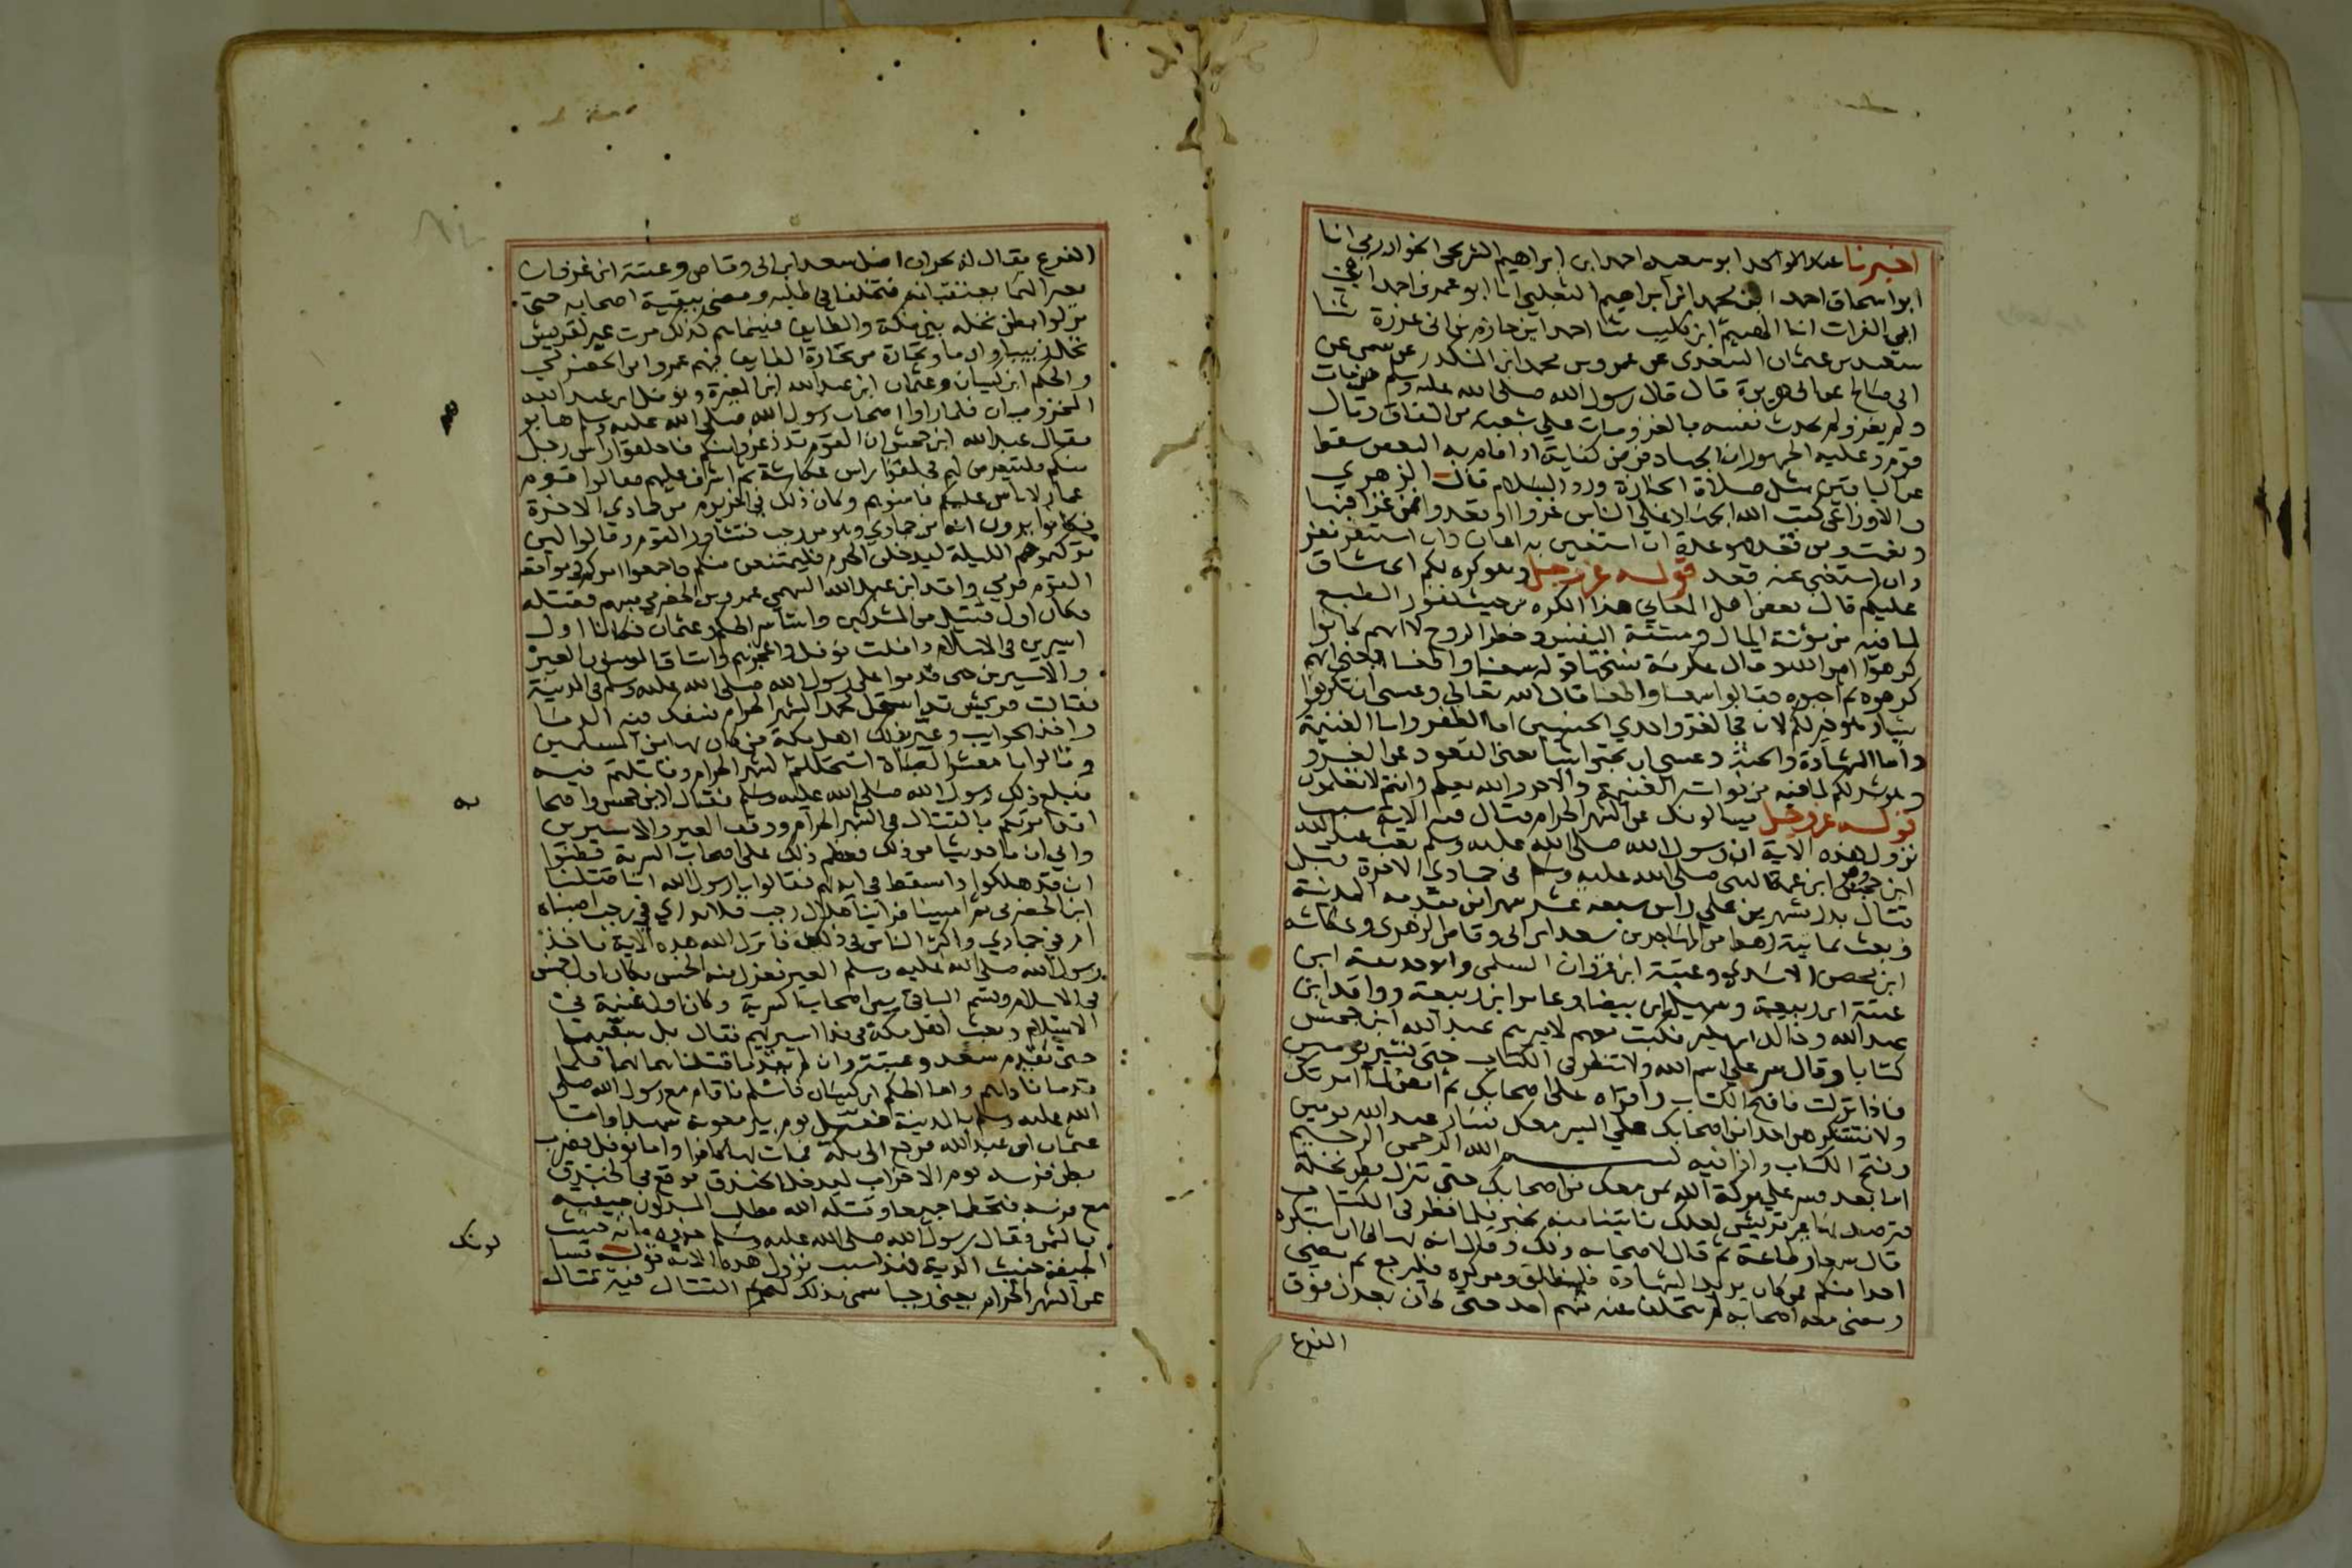 اخبرنا عبد الواحد ابو سعيد احمد ابن ابراهيم الشريحي الخوارزمي انا
ابو اسحاق احمد ابن محمد ابن ابراهيم الثعلبي انا ابو عمرو احمد ابن
ابي الفرات انا الهيثم ابن كليب ثنا احمد ابن حازم بن ابي غرزة ثنا
سعيد بن عثمان السعدي عن عمرو بن محمد ابن المنكدر عن سمي عن
ابي صالح عن ابي هريرة قال قال رسول الله صلى الله عليه وسلم من مات
ولم يغز ولم يحدث نفسه بالغزو مات على شعبة من النفاق وقال
قوم وعليه الجمهور ان الجهاد فرض كفاية اذا قام به البعض سقط
عن الباقين مثل صلاة الجنازة ورد السلام قال الزهري
والاوزاعي كتب الله الجهاد على الناس غزوا او قعدوا فمن غزا فبها
ونعمت ومن قعد فهو عدة ان استعين به اعان وان استنفر نفر
وان استغني عنه قعد قوله عز وجل وهو كره لكم اي شاق
عليكم قال بعض اهل المعاني هذا الكره من حيث نفور الطبع
لما فيه من مؤنة المال ومشقة النفس وخطر الروح لا انهم
كرهوا امر الله وقال عكرمة نسختها قوله سمعنا واطعنا يعني انهم
كرهوه ثم احبوه فقالوا سمعنا واطعنا قال الله تعالى وعسى ان تكرهوا
شيا وهو خير لكم لان في الغزو احدي الحسنيين اما الظفر واما الغنيمة
واما الشهادة والجنة وعسى ان تحبوا شيا يعني القعود عن الغزو
وهو شر لكم لما فيه من فوات الغنيمة والاجر والله يعلم وانتم لا تعلمون
قوله عز وجل يسالونك عن الشهر الحرام قتال فيه الاية سبب
نزول هذه الاية ان رسول الله صلى الله عليه وسلم بعث عبد الله
ابن جحش وهو ابن عمة النبي صلى الله عليه وسلم في جمادي الاخرة قبل
قتال بدر بشهرين على راس سبعة عشر شهرا من مقدمه المدينة
وبعث ثمانية رهط من المهاجرين سعد ابن ابي وقاص الزهري وعكاشة
ابن محصن الاسدي وعتبة ابن غزوان السلمي وابو حذيفة ابن
عتبة ابن ربيعة وسهيل ابن بيضا وعامر ابن ربيعة وواقد ابن
عبد الله وخالد ابن بكير فكتب معهم لاميرهم عبد الله ابن جحش
كتابا وقال سر على اسم الله ولا تنظر في الكتاب حتى تسير يومين
فاذا نزلت فافتح الكتاب واقراه على اصحابك ثم امض لما امرتك
ولا تستكرهن احدا من اصحابك على السير معك فسار عبد الله يومين
وفتح الكتاب واذا فيه بسم الله الرحمن الرحيم
اما بعد فسر على بركة الله بمن معك من اصحابك حتى تنزل بطن نخلة
فترصد بها عير قريش لعلك تاتينا منه بخبر فلما نظر في الكتاب
قال سمعا وطاعة ثم قال لاصحابه ذلك وقال انه نهاني ان استكره
احدا منكم فمن كان يريد الشهادة فلينطلق ومن كره فليرجع ثم مضى
ومضى معه اصحابه لم يتخلف عنه منهم احد حتى كان بمعدن فوق
الفرع
الفرع يقال له بحران اضل سعد ابن ابي وقاص وعتبة ابن غزوان
بعيرا لهما يعتقبانه فتخلفا في طلبه ومضى ببقية اصحابه حتى
نزلوا بطن نخلة بين مكة والطايف فبينما هم كذلك مرت عير لقريش
تحمل زبيبا وادما وتجارة من تجارة الطايف فيهم عمرو ابن الحضرمي
والحكم ابن كيسان وعثمان ابن عبد الله ابن المغيرة ونوفل ابن عبد الله
المخزوميان فلما راوا اصحاب رسول الله صلى الله عليه وسلم هابو
فقال عبد الله ابن جحش ان القوم قد ذعروا منكم فاحلقوا راس رجل
منكم فليتعرض لهم فحلقوا راس عكاشة ثم اشرف عليهم فقالوا قوم
عمار لا باس عليكم فامنوهم وكان ذلك في اخر يوم من جمادي الاخرة
فكانوا يرون انه من جمادي وهو من رجب فتشاور القوم وقالوا لين
تركتموهم الليلة ليدخلن الحرم فليمتنعن منكم فاجمعوا امركم في مواقعة
القوم فرمي واقد ابن عبد الله السهمي عمرو بن الحضرمي بسهم فقتله
فكان اول قتيل من المشركين واستاسر الحكم وعثمان فكانا اول
اسيرين في الاسلام وافلت نوفل واعجزهم واستاق المومنون العير
والاسيرين حتى قدموا على رسول الله صلى الله عليه وسلم في المدينة
فقالت قريش قد استحل محمد الشهر الحرام سفك فيه الدما
واخذ الحرايب وعير بذلك اهل مكة من كان بها من المسلمين
وقالوا يا معشر الصباة استحللتم الشهر الحرام وقاتلتم فيه
فبلغ ذلك رسول الله صلى الله عليه وسلم فقال لابن جحش واصحا
به
ما امرتكم بالقتال في الشهر الحرام ووقف العير والاسيرين
وابي ان ياخذ شيا من ذلك فعظم ذلك على اصحاب السرية فظنوا
ان قد هلكوا واسقط في ايديهم فقالوا يا رسول الله انا قتلنا
ابن الحضرمي ثم امسينا فراينا هلال رجب فلا ندري في رجب اصبناه
ام في جمادي واكثر الناس في ذلك فانزل الله هذه الاية فاخذ
رسول الله صلى الله عليه وسلم العير فعزل منه الخمس فكان اول خمس
في الاسلام وقسم الباقي بين اصحاب السرية وكان اول غنيمة في
الاسلام وبعث اهل مكة في فدا اسيريهم فقال بل نبقيهما
حتى يقدم سعد وعتبة وان لم يقدما قتلناهما بهما فلما
قدما فاداهم واما الحكم ابن كيسان فاسلم فاقام مع رسول الله صلى
الله عليه وسلم بالمدينة فقتل يوم بير معونة شهيدا واما
عثمان ابن عبد الله فرجع الى مكة فمات بها كافرا واما نوفل فضرب
بطن فرسه يوم الاحزاب ليدخل الخندق فوقع في الخندق
مع فرسه فتحطما جميعا وقتله الله فطلب المشركون جيفته
بالثمن فقال رسول الله صلى الله عليه وسلم خذوه فانه خبيث
الجيفة خبيث الدية فهذا سبب نزول هذه الاية قوله يسا
لونك
عن الشهر الحرام يعني رجبا سمي بذلك لتحريم القتال فيه قتال